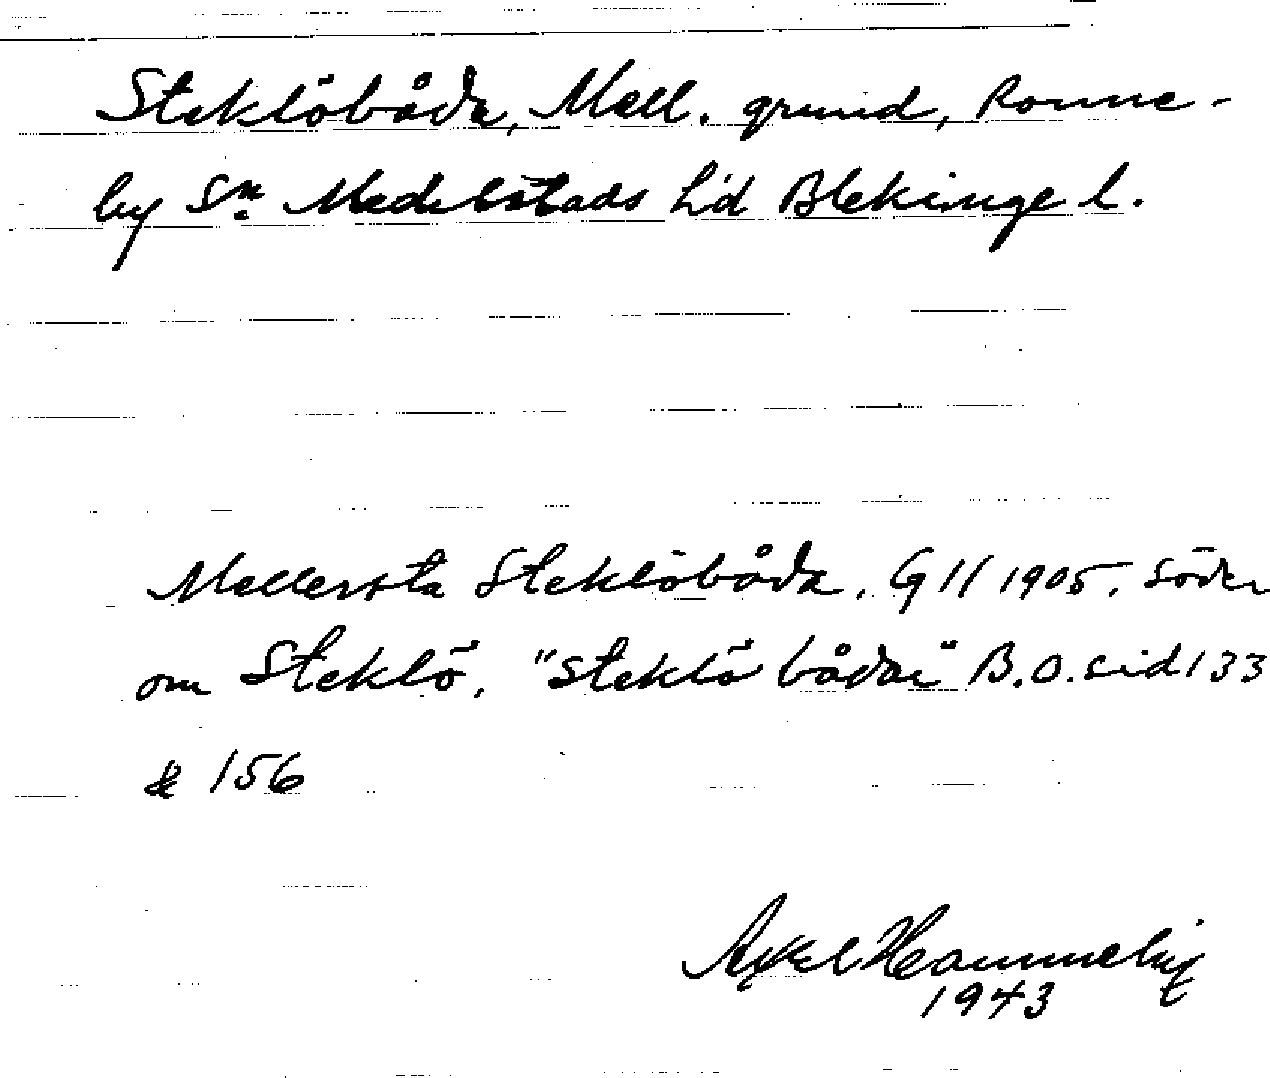 Steklöbåda, Mell. grund, Ronne-
by Sn. Medelstads h'd Blekinge l.
Mellersta Steklöbåda. G 11 1905. söder
om Steklö. "Steklö bådar" B.O. sid 133
& 156
Axel
1943